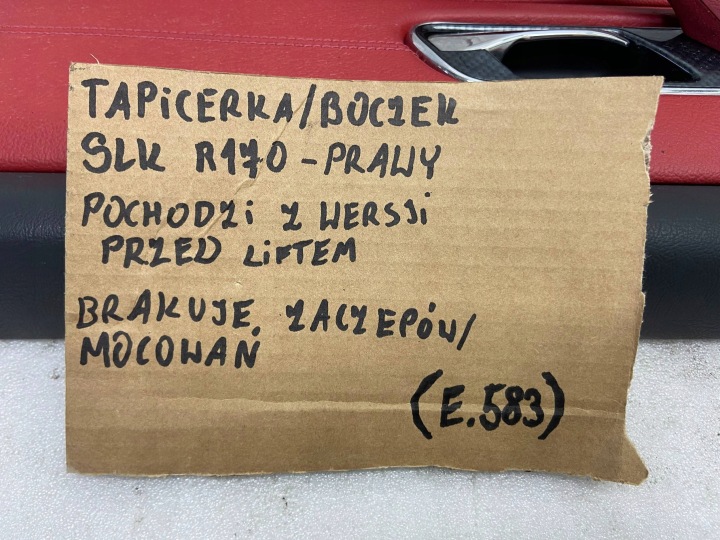 TAPiCERKA/BOCZEK
SLK R170 - PRAWY
POCHODZi Z WERSJi
PRZED LiFTEM
BRAKUJE ZACZEPÓW/
MOCOWAŃ
(E.583)